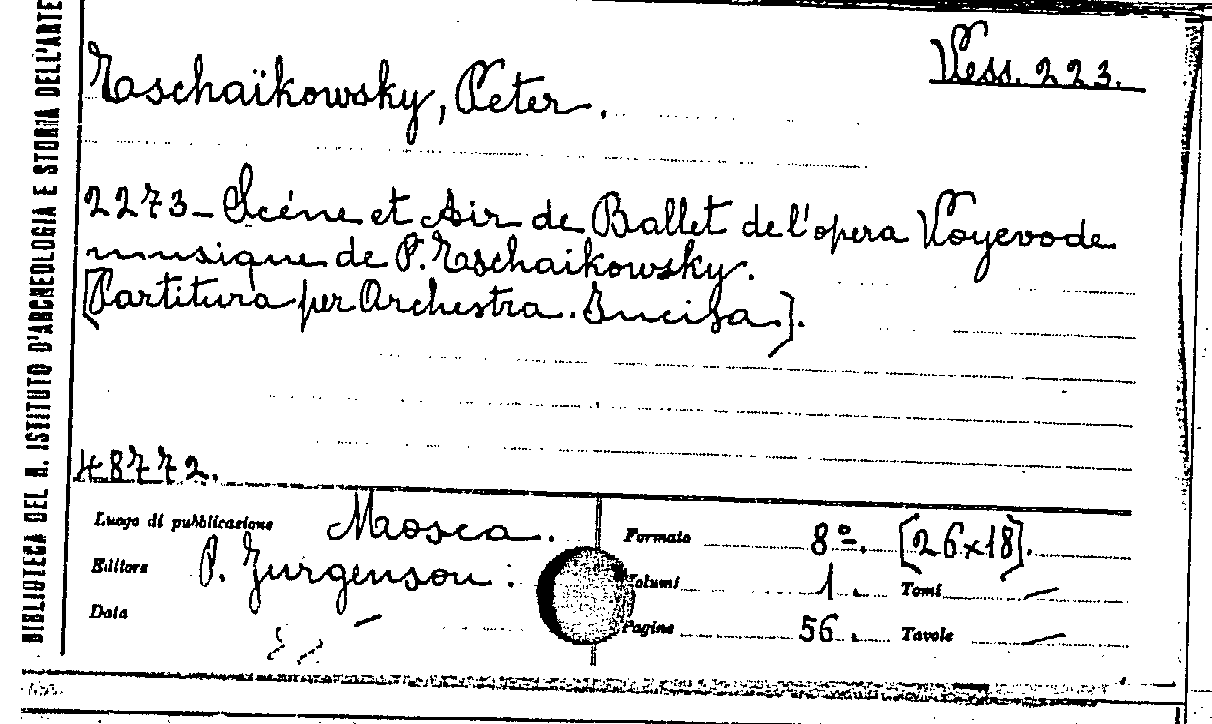 BIBLIOTECA DEL R. ISTITUTO D'ARCHEOLOGIA E STORIA DELL'ARTE
Tschaïkowsky, Peter.
Vess. 223.
2273 - Scéne et Air de Ballet de l'opera Voyevode
musique de P. Tschaikowsky.
[Partitura per Orchestra. Incisa.].
48772.
Luogo di pubblicazione Mosca.
Editore P. Jurgenson:
Data —
Formato 8º. [26x18].
Volumi 1. Tomi —
Pagine 56. Tavole —